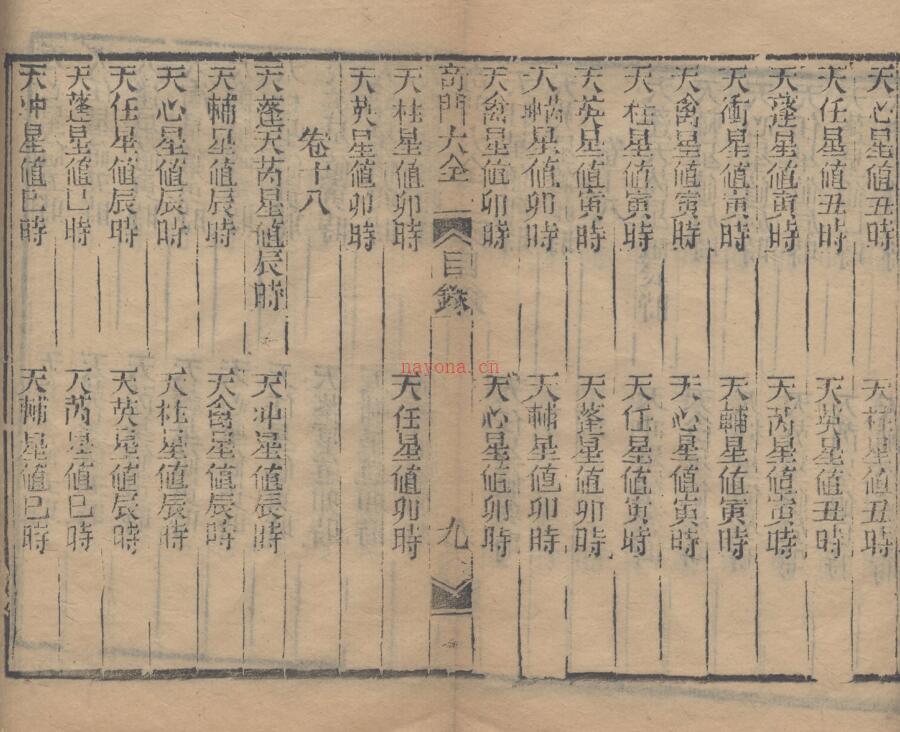 天心星値丑時　天柱星値丑時
天任星値丑時　天英星値丑時
天蓬星値寅時　天芮星値寅時
天衝星値寅時　天輔星値寅時
天禽星値寅時　天心星値寅時
天柱星値寅時　天任星値寅時
天英星値寅時　天蓬星値卯時
天星値卯時　天輔星値卯時
天禽星値卯時　天心星値卯時
奇門大全　目錄　九
天柱星値卯時　天任星値卯時
天英星値卯時
卷十八
天蓬天芮星値辰時　天冲星値辰時
天輔星値辰時　天禽星値辰時
天心星値辰時　天柱星値辰時
天任星値辰時　天英星値辰時
天蓬星値巳時　天芮星値巳時
天冲星値巳時　天輔星値巳時
nayona.cn